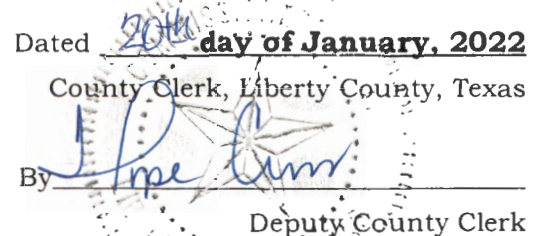 Dated 20th day of January, 2022
County Clerk, Liberty County, Texas
By Hope
Deputy County Clerk